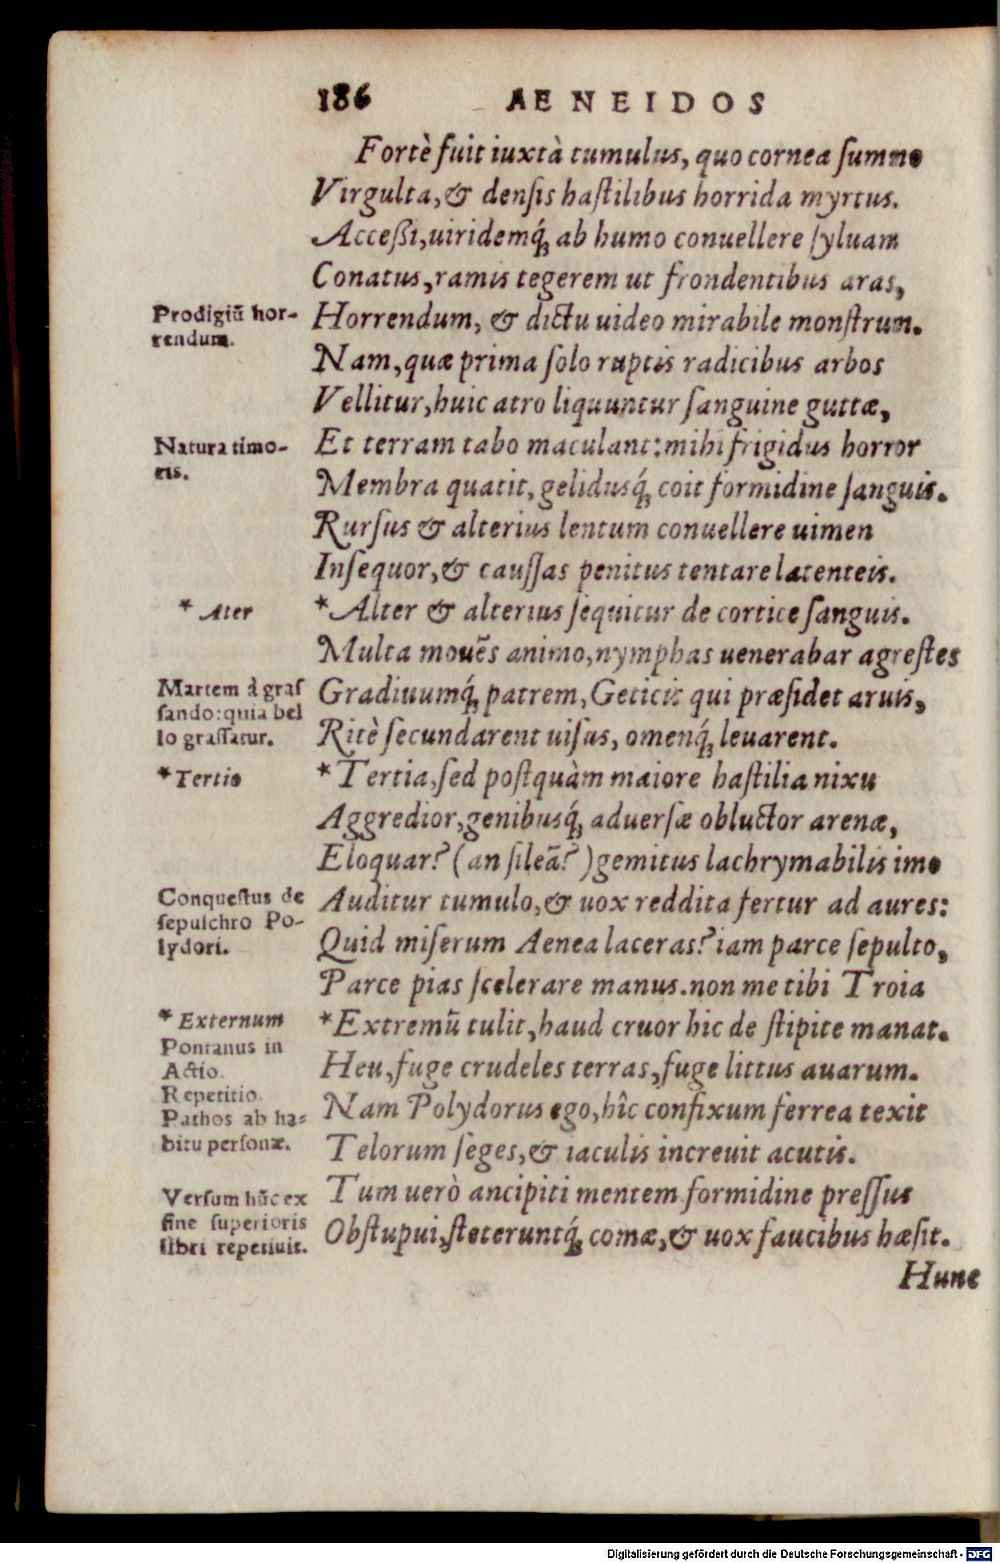 186 AENEIDOS
Fortè fuit iuxtà tumulus, quo cornea summo
Virgulta, & densis hastilibus horrida myrtus.
Accessi, uiridemq́; ab humo conuellere syluam
Conatus, ramis tegerem ut frondentibus aras,
Prodigiū hor-
rendum.
Horrendum, & dictu uideo mirabile monstrum.
Nam, quæ prima solo ruptis radicibus arbos
Vellitur, huic atro liquuntur sanguine guttæ,
Natura timo-
ris.
Et terram tabo maculant: mihi frigidus horror
Membra quatit, gelidusq́; coit formidine sanguis.
Rursus & alterius lentum conuellere uimen
Insequor, & caussas penitus tentare latenteis.
* Ater
* Alter & alterius sequitur de cortice sanguis.
Multa mouēs animo, nymphas uenerabar agrestes
Martem à gras
sando: quia bel
lo grassatur.
Gradiuumq́; patrem, Geticis qui præsidet aruis,
Ritè secundarent uisus, omenq́; leuarent.
* Tertio
* Tertia, sed postquàm maiore hastilia nixu
Aggredior, genibusq́; aduersæ obluctor arenæ,
Eloquar? (an sileā?) gemitus lachrymabilis imo
Conquestus de
sepulchro Po-
lydori.
Auditur tumulo, & uox reddita fertur ad aures:
Quid miserum Aenea laceras? iam parce sepulto,
Parce pias scelerare manus. non me tibi Troia
* Externum
Pontanus in
Actio.
Repetitio.
Pathos ab ha-
bitu personæ.
* Extremū tulit, haud cruor hic de stipite manat.
Heu, fuge crudeles terras, fuge littus auarum.
Nam Polydorus ego, hîc confixum ferrea texit
Telorum seges, & iaculis increuit acutis.
Versum hūc ex
fine superioris
libri repetiuit.
Tum uerò ancipiti mentem formidine pressus
Obstupui, steteruntq́; comæ, & uox faucibus hæsit.
Hunc
Digitalisierung gefördert durch die Deutsche Forschungsgemeinschaft - DFG